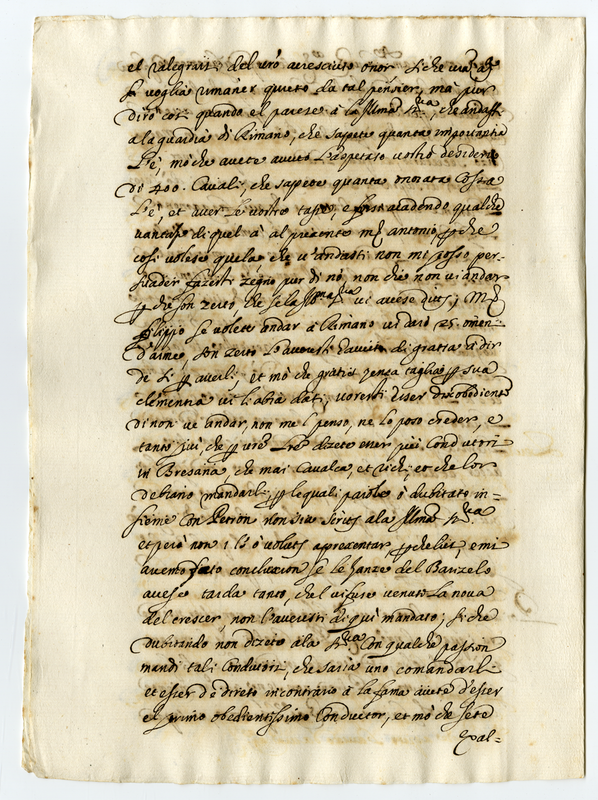 el ralegrar del vro acresciuto onor si che
voglià rimaner quieto da tal pensier, mà pur
Dirò così quando el parese à la Illma Sria, che andasti
a la guardia di Rimano, che sapete quanta importantia
l'è, mò che avete avuto l'adpetaso vostro desiderio
Di 400. Cavali, che sapete quanta onorata Cossa
l'è, et aver le vostre tase, e forsi acadendo qualche
di quel à al presente mß antonio, che
così volese quela, che v'andasti non mi posso per=
suader fazesti segno pur di nò, non che non vi andar
che son zerto, che se la Illma Sria vi avese ditto, Mß
Filippo se volete andar à Rimano vi darò 25. omeni
d'arme, son zerto l'averesti havuto di gratia a dir
de sì averli, et mò che gratis senza taglia sua
clementia vi l'abia dati, voresti esser disobediente
Di non vi andar, non mel penso, ne lo poso creder, e
tanto più che vre lre dizete esser più Conductori
in Bresana, che mai Cavalca, et richi, et che lor
debiano mandarli, le quali parole ò dubitato in=
sieme con Petron non sia scrito ala Illma Sria
et però non i l'ò voluto apresentar, che lui, e mi
avemo fato concluxion se le zanze del Barizelo
avese tarda tanto, che'l vi fuse venuto la nova
del crescer, non l'averesti di quì mandato; si che
dubitando non dizete ala Sria Con qualche passion
mandi tali Conductori, che saria uno comandarli
et esser de direto incontrario à la fama avete d'esser
el primo obedientissimo Conductor, et mò che sete
exal=